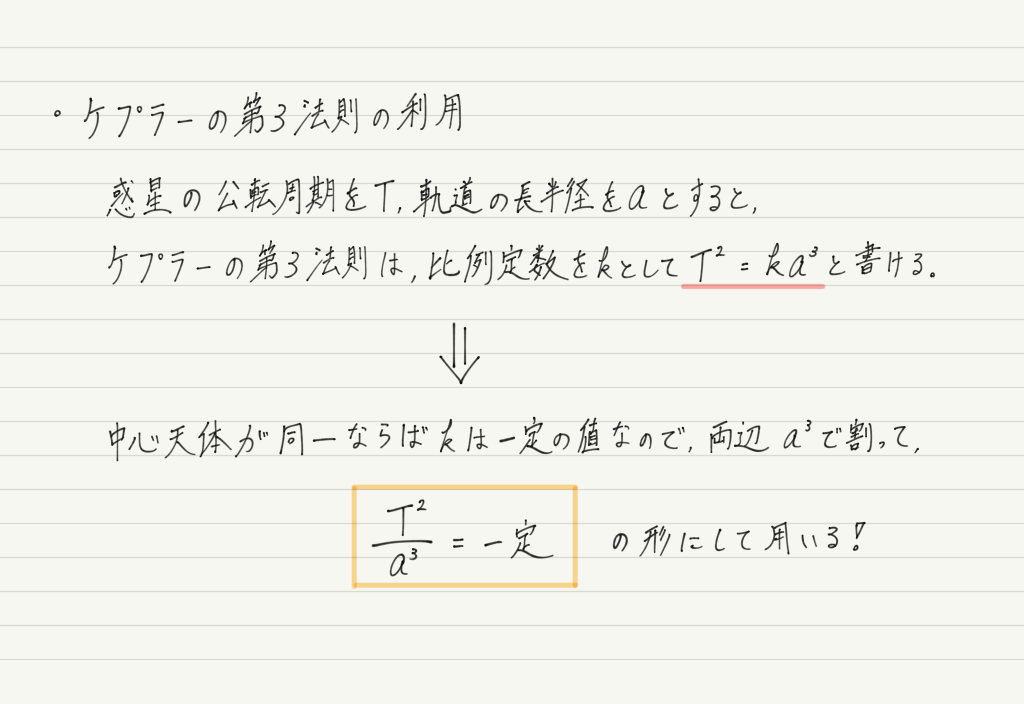 ・ケプラーの第3法則の利用
惑星の公転周期をT, 軌道の長半径をaとすると,
ケプラーの第3法則は, 比例定数をkとして T² = ka³ と書ける。
⇓
中心天体が同一ならばkは一定の値なので, 両辺 a³で割って,
T²/a³ = 一定 の形にして用いる!